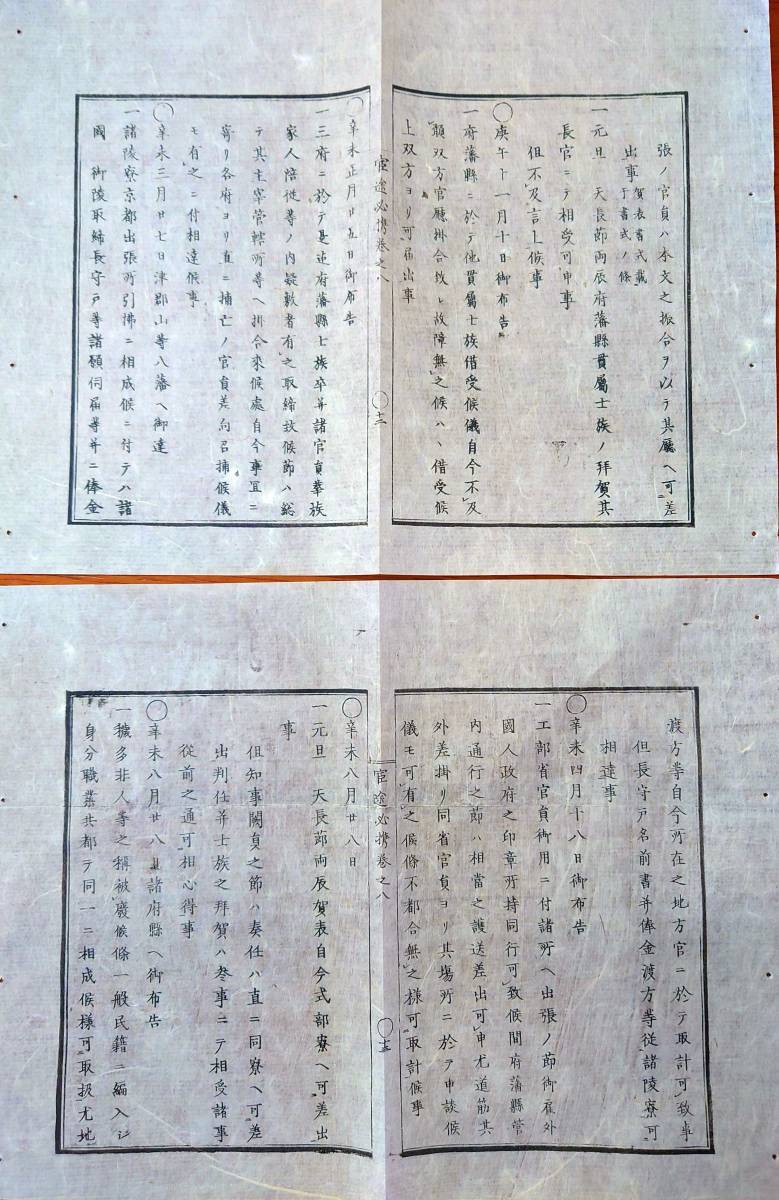 張ノ官員ハ本文之振合ヲ以テ其廳ヘ可差
出事 賀表書式載
于書式ノ條
一元旦 天長節両辰府藩縣貫屬士族ノ拜賀其
長官ニテ相受可申事
但不及言上候事
○庚午十一月十日御布告
一府藩縣ニ於テ他貫屬士族借受候儀自今不及
願双方官廳掛合致シ故障無之候ハヽ借受候
上双方ヨリ可届出事
宦途必携巻之八
○十二
○辛未正月廿五日御布告
一三府ニ於テ是迠府藩縣士族卒并諸官員華族
家人陪従等ノ内疑敷者有之取締致候節ハ総
テ其主宰管轄所等ヘ掛合来候處自今事冝ニ
寄リ各府ヨリ直ニ捕亡ノ官員差向召捕候儀
モ有之ニ付相達候事
○辛未三月廿七日津郡山等八藩ヘ御達
一諸陵寮京都出張所引拂ニ相成候ニ付テハ諸
國 御陵取締長守戸等諸願伺届等并ニ俸金
渡方等自今所在之地方官ニ於テ取計可致事
但長守戸名前書并俸金渡方等従諸陵寮可
相達事
○辛未四月十八日御布告
一工部省官員御用ニ付諸所ヘ出張ノ節御雇外
國人政府之印章所持同行可致候間府藩縣管
内通行之節ハ相當之護送差出可申尤道筋其
外差掛リ同省官員ヨリ其塲所ニ於テ申談候
儀モ可有之候條不都合無之様可取計候事
宦途必携巻之八
○十三
○辛未八月廿八日
一元旦 天長節両辰賀表自今式部寮ヘ可差出
事
但知事闕員之節ハ奏任ハ直ニ同寮ヘ可差
出判任并士族之拜賀ハ参事ニテ相受諸事
従前之通可相心得事
○辛未八月廿八日諸府縣ヘ御布告
一穢多非人等之稱被廢候條一般民籍ニ編入シ
身分職業共都テ同一ニ相成候様可取扱尤地